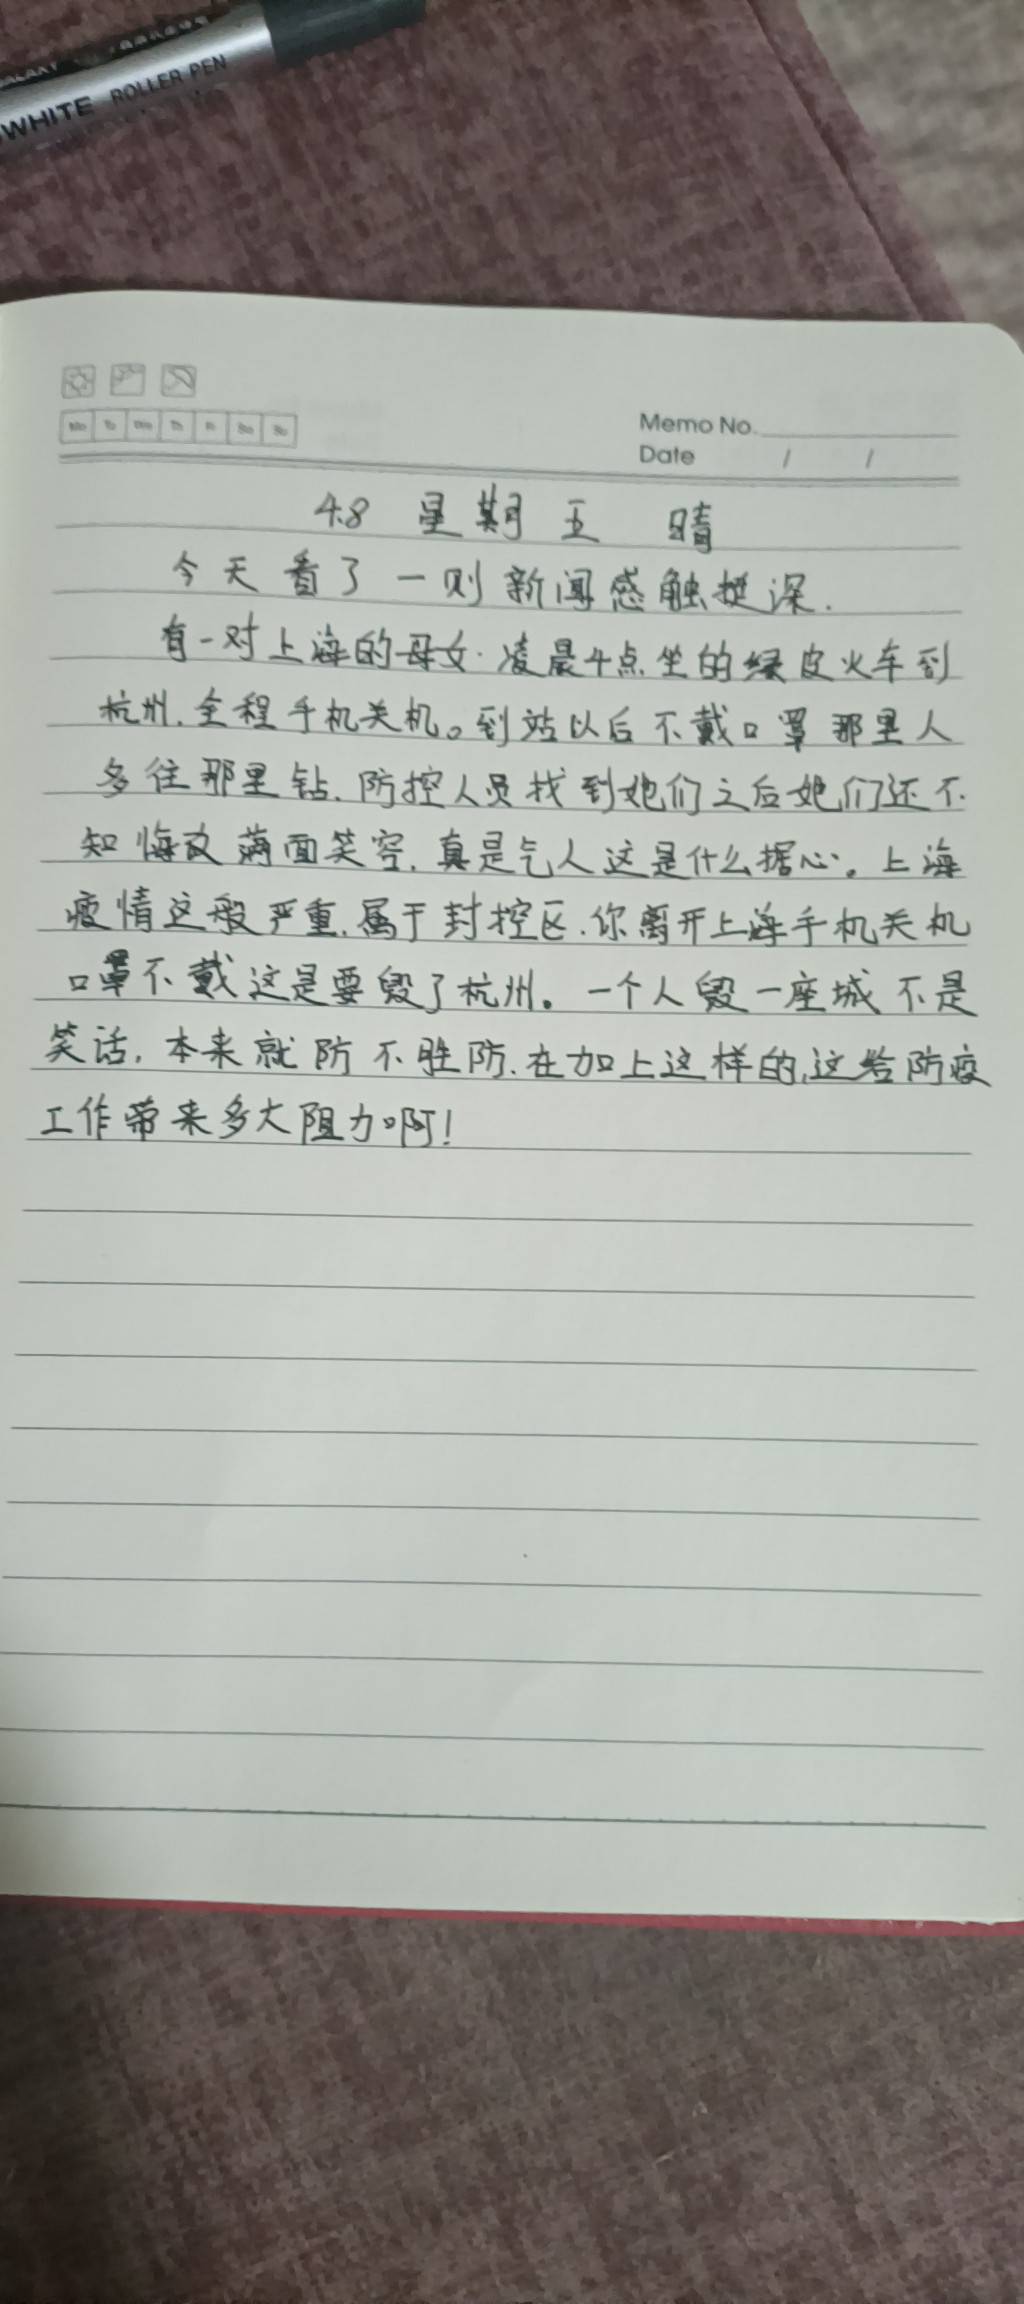 WHITE ROLLER PEN
Memo No.
Date / /
4.8 星期五 晴
今天看了一则新闻感触挺深.
有一对上海的母女.凌晨4点坐的绿皮火车到
杭州.全程手机关机。到站以后不戴口罩那里人
多往那里钻.防控人员找到她们之后她们还不
知悔改满面笑容.真是气人这是什么据心。上海
疫情这般严重.属于封控区.你离开上海手机关机
口罩不戴这是要毁了杭州。一个人毁一座城不是
笑话.本来就防不胜防.在加上这样的,这给防疫
工作带来多大阻力啊!